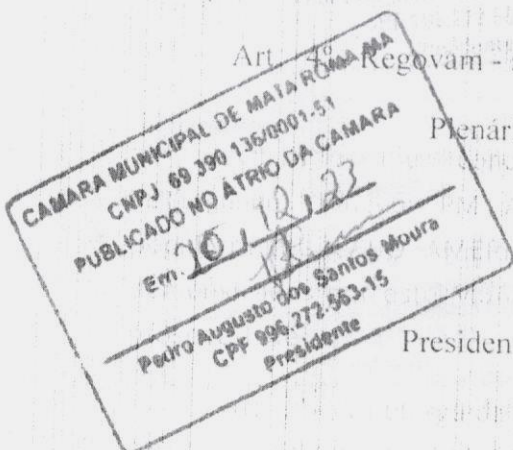 Art. 4º Regovam -
Plenár
CAMARA MUNICIPAL DE MATA ROMA MA
CNPJ 69 390 136/0001-51
PUBLICADO NO ÁTRIO DA CAMARA
Em. 10, 12, 23
Pedro Augusto dos Santos Moura
CPF 996.272-563-15
Presidente
Presiden